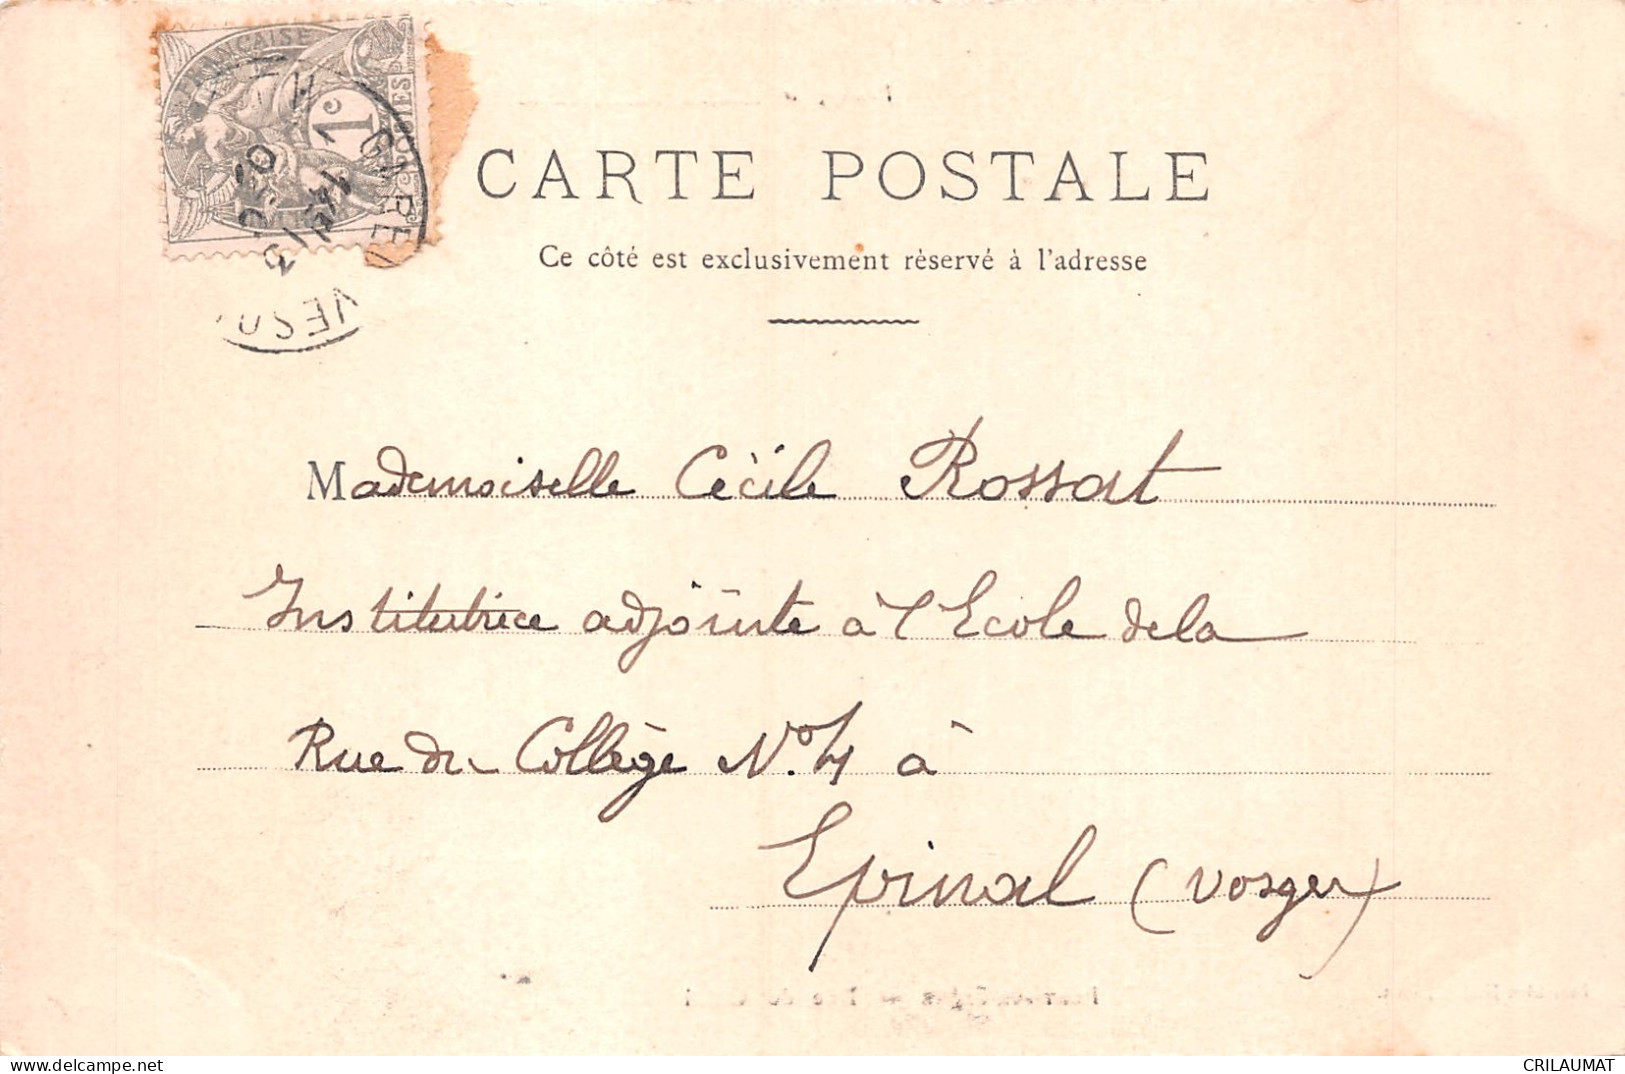 FRANÇAISE
1c
GARE
VESOUL
CARTE POSTALE
Ce côté est exclusivement réservé à l'adresse
Mademoiselle Cécile Rossat
Institutrice adjointe à l'Ecole de la
Rue du Collège N.º 4 à
Epinal (Vosges)
CRILAUMAT